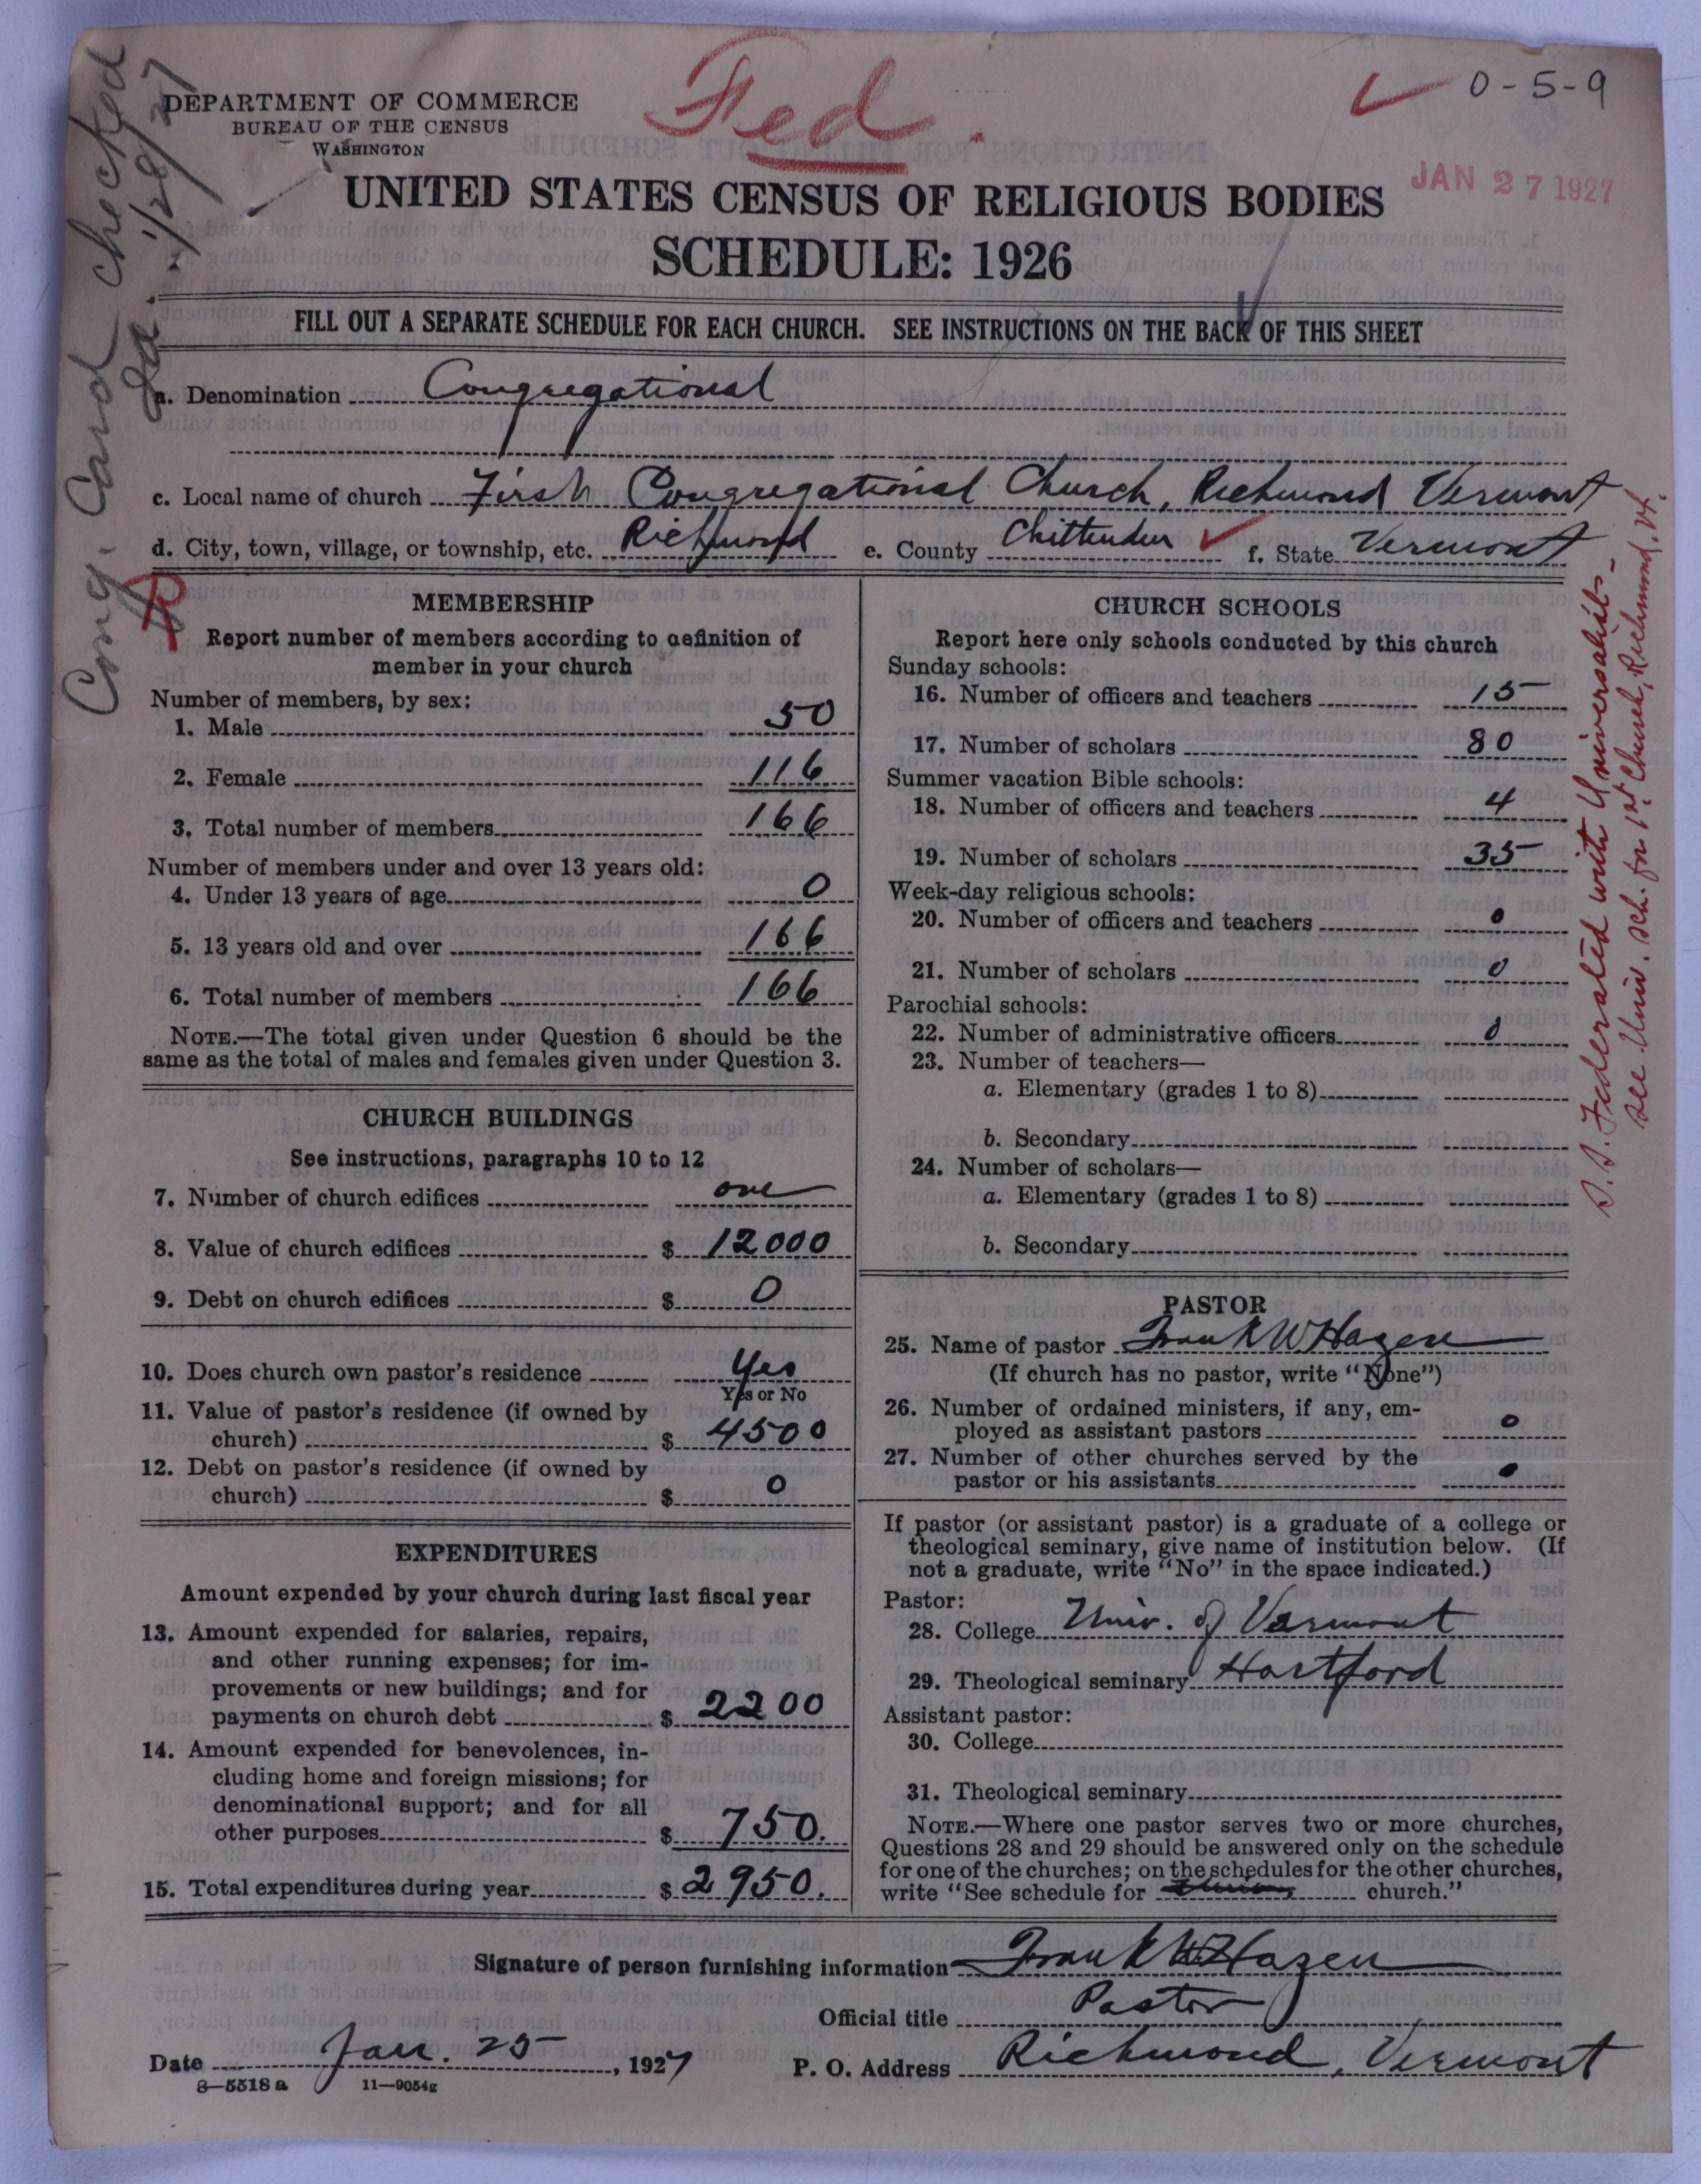 Cong. Card checked
Ja. 1/28/27
DEPARTMENT OF COMMERCE
BUREAU OF THE CENSUS
WASHINGTON
Fed.
0-5-9
JAN 27 1927
UNITED STATES CENSUS OF RELIGIOUS BODIES
SCHEDULE: 1926
FILL OUT A SEPARATE SCHEDULE FOR EACH CHURCH. SEE INSTRUCTIONS ON THE BACK OF THIS SHEET
a. Denomination Congregational
c. Local name of church First Congregational Church, Richmond Vermont
d. City, town, village, or township, etc. Richmond e. County Chittenden f. State Vermont
R
MEMBERSHIP
Report number of members according to definition of
member in your church
Number of members, by sex:
1. Male 50
2. Female 116
3. Total number of members 166
Number of members under and over 13 years old:
4. Under 13 years of age 0
5. 13 years old and over 166
6. Total number of members 166
NOTE.—The total given under Question 6 should be the
same as the total of males and females given under Question 3.
CHURCH BUILDINGS
See instructions, paragraphs 10 to 12
7. Number of church edifices one
8. Value of church edifices $ 12000
9. Debt on church edifices $ 0
10. Does church own pastor's residence Yes
Yes or No
11. Value of pastor's residence (if owned by
church) $ 4500
12. Debt on pastor's residence (if owned by
church) $ 0
EXPENDITURES
Amount expended by your church during last fiscal year
13. Amount expended for salaries, repairs,
and other running expenses; for im-
provements or new buildings; and for
payments on church debt $ 2200
14. Amount expended for benevolences, in-
cluding home and foreign missions; for
denominational support; and for all
other purposes $ 750.
15. Total expenditures during year $ 2950.
CHURCH SCHOOLS
Report here only schools conducted by this church
Sunday schools:
16. Number of officers and teachers 15
17. Number of scholars 80
Summer vacation Bible schools:
18. Number of officers and teachers 4
19. Number of scholars 35
Week-day religious schools:
20. Number of officers and teachers 0
21. Number of scholars 0
Parochial schools:
22. Number of administrative officers 0
23. Number of teachers—
a. Elementary (grades 1 to 8)
b. Secondary
24. Number of scholars—
a. Elementary (grades 1 to 8)
b. Secondary
PASTOR
25. Name of pastor Frank W Hazen
(If church has no pastor, write "None")
26. Number of ordained ministers, if any, em-
ployed as assistant pastors 0
27. Number of other churches served by the
pastor or his assistants 0
If pastor (or assistant pastor) is a graduate of a college or
theological seminary, give name of institution below. (If
not a graduate, write "No" in the space indicated.)
Pastor:
28. College Univ. of Vermont
29. Theological seminary Hartford
Assistant pastor:
30. College
31. Theological seminary
NOTE.—Where one pastor serves two or more churches,
Questions 28 and 29 should be answered only on the schedule
for one of the churches; on the schedules for the other churches,
write "See schedule for church."
S.S. Federated with Universalists-
see Univ. sch. for 1st Church, Richmond, Vt.
Signature of person furnishing information Frank W Hazen
Official title Pastor
Date Jan. 25, 1927 P. O. Address Richmond, Vermont
8—5518 a 11—9054g